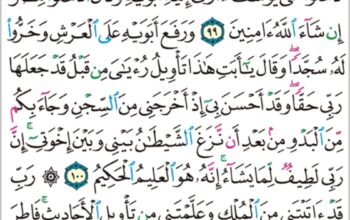 إِن شَآءَ ٱللَّهُ ءَامِنِينَ ٩٩ وَرَفَعَ أَبَوَيْهِ عَلَى ٱلْعَرْشِ وَخَرُّوا۟
لَهُۥ سُجَّدًا ۖ وَقَالَ يَٰٓأَبَتِ هَٰذَا تَأْوِيلُ رُءْيَٰىَ مِن قَبْلُ قَدْ جَعَلَهَا
رَبِّى حَقًّا ۖ وَقَدْ أَحْسَنَ بِىٓ إِذْ أَخْرَجَنِى مِنَ ٱلسِّجْنِ وَجَآءَ بِكُم
مِّنَ ٱلْبَدْوِ مِنۢ بَعْدِ أَن نَّزَغَ ٱلشَّيْطَٰنُ بَيْنِى وَبَيْنَ إِخْوَتِىٓ ۚ إِنَّ
رَبِّى لَطِيفٌ لِّمَا يَشَآءُ ۚ إِنَّهُۥ هُوَ ٱلْعَلِيمُ ٱلْحَكِيمُ ١٠٠ ۞ رَبِّ
قَدْ ءَاتَيْتَنِى مِنَ ٱلْمُلْكِ وَعَلَّمْتَنِى مِن تَأْوِيلِ ٱلْأَحَادِيثِ ۚ فَاطِرَ